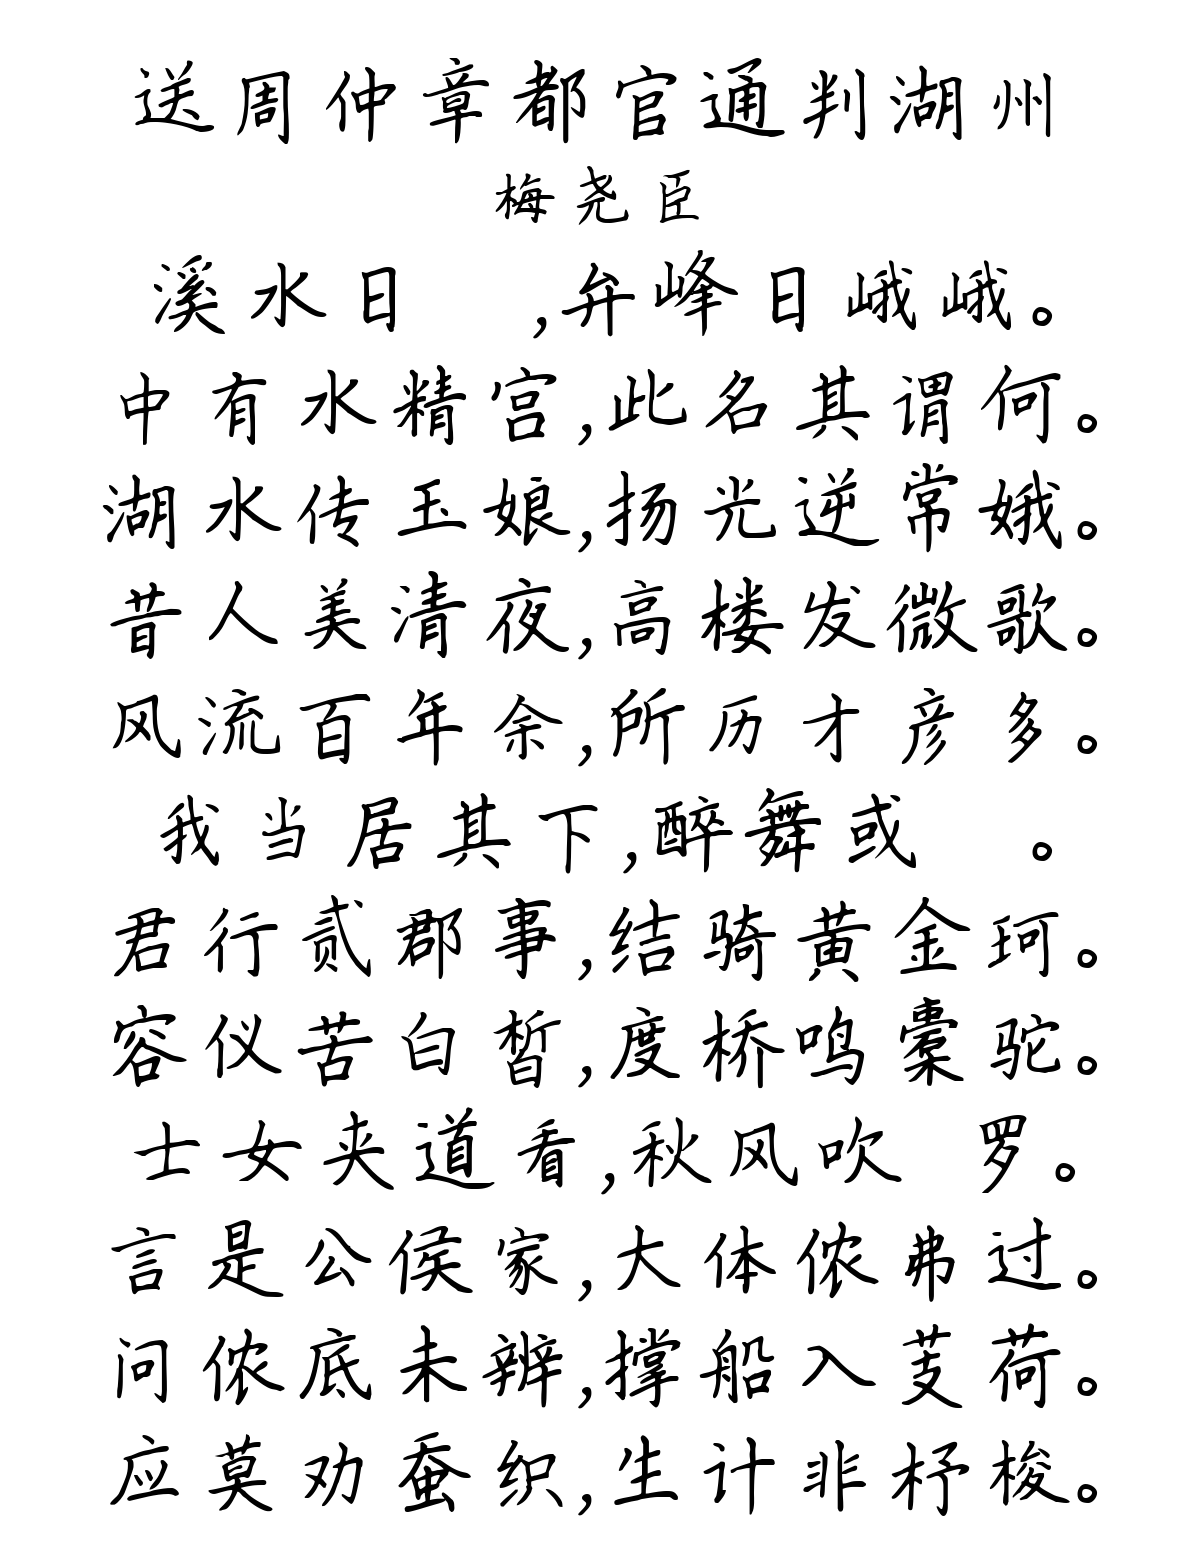 送周仲章都官通判湖州
梅尧臣
溪水日 ,弁峰日峨峨。
中有水精宫,此名其谓何。
湖水传玉娘,扬光逆常娥。
昔人美清夜,高楼发微歌。
风流百年余,所历才彦多。
我当居其下,醉舞或 。
君行贰郡事,结骑黄金珂。
容仪苦白皙,度桥鸣橐驼。
士女夹道看,秋风吹 罗。
言是公侯家,大体侬弗过。
问侬底未辨,撑船入芰荷。
应莫劝蚕织,生计非杼梭。